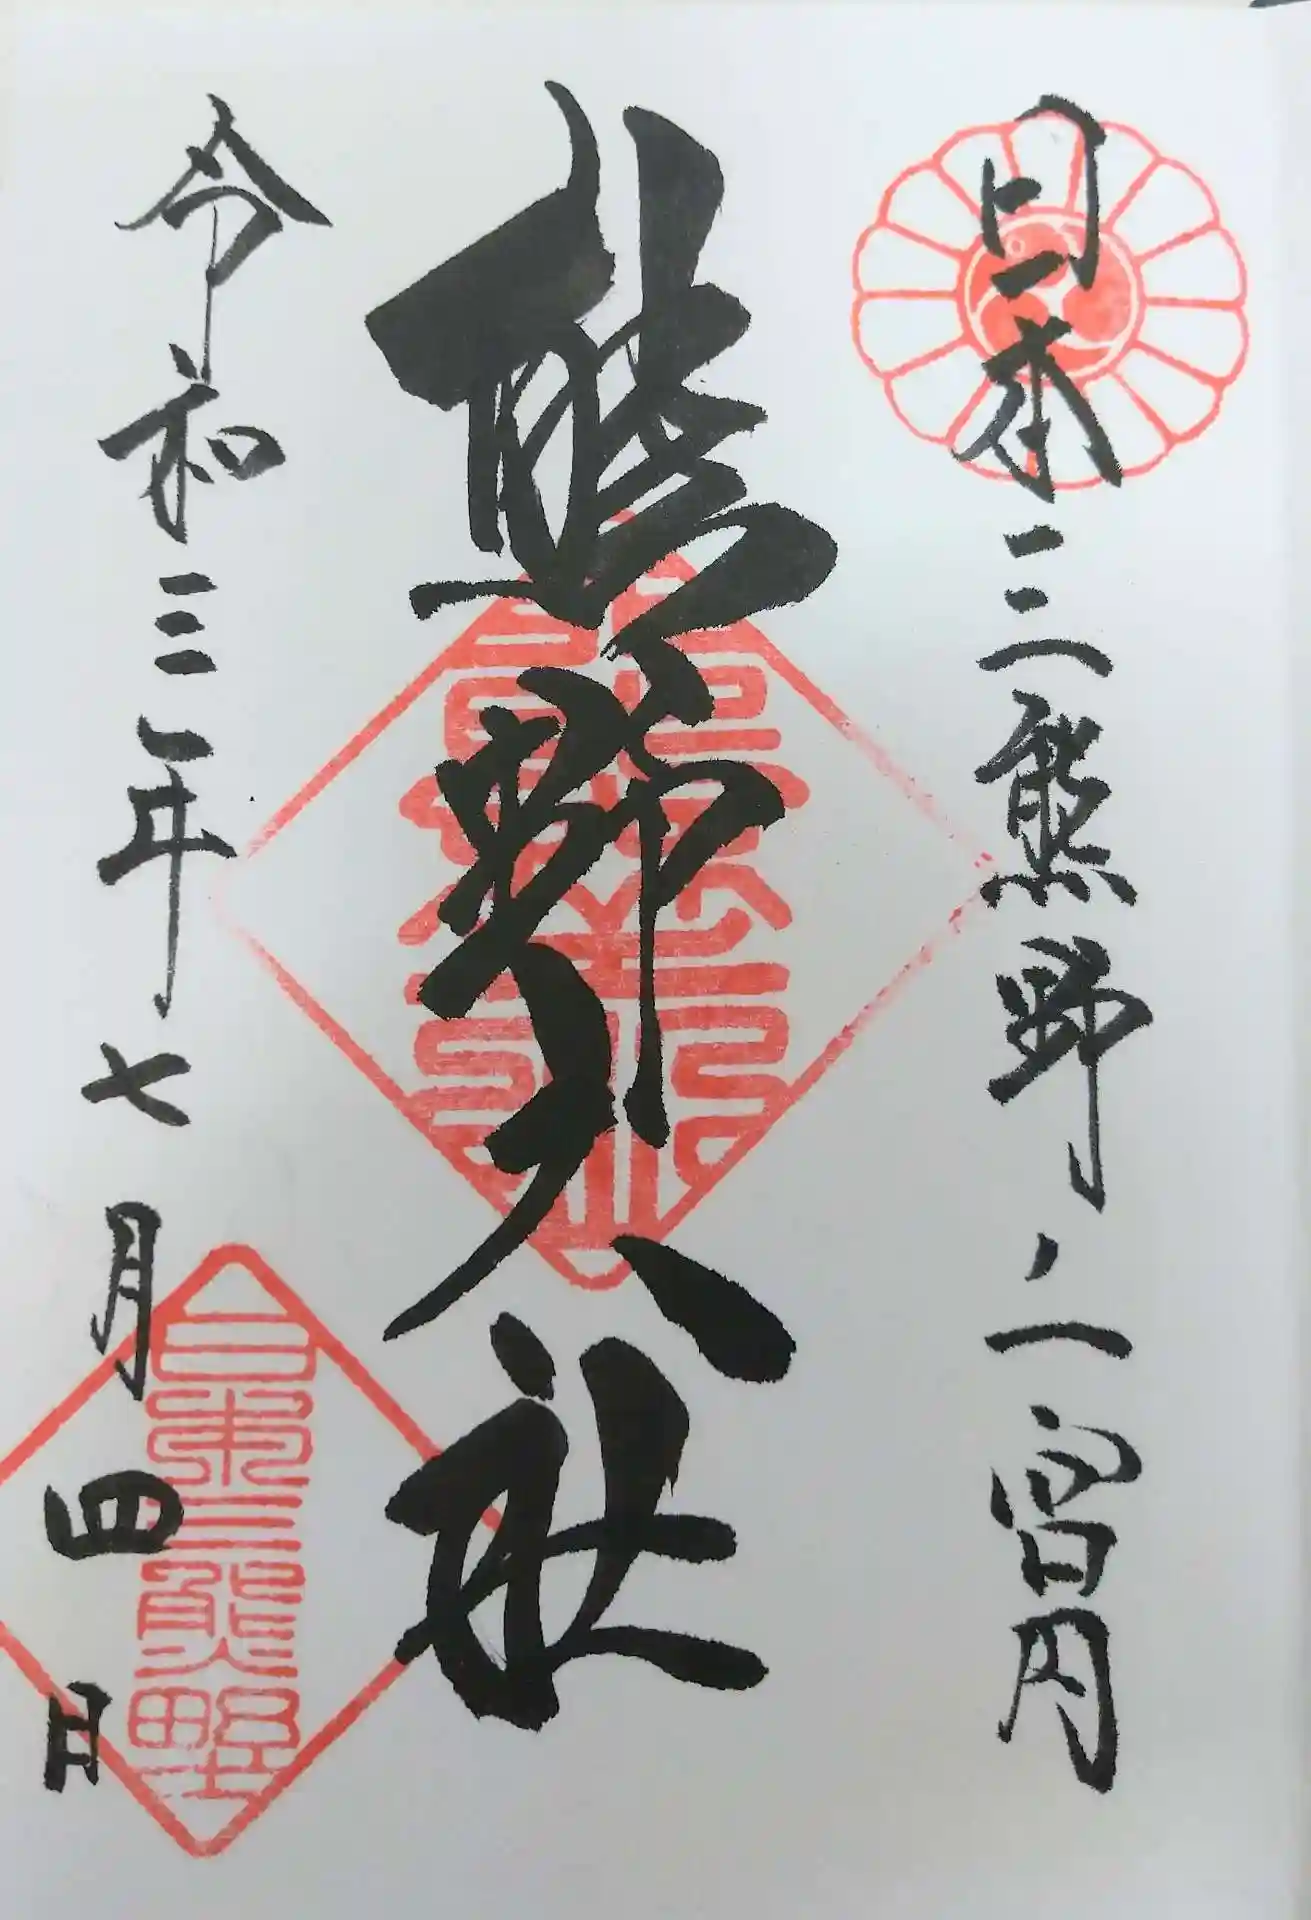 日本三熊野ノ一宮内
熊野大社
令和三年七月四日
日本三熊野